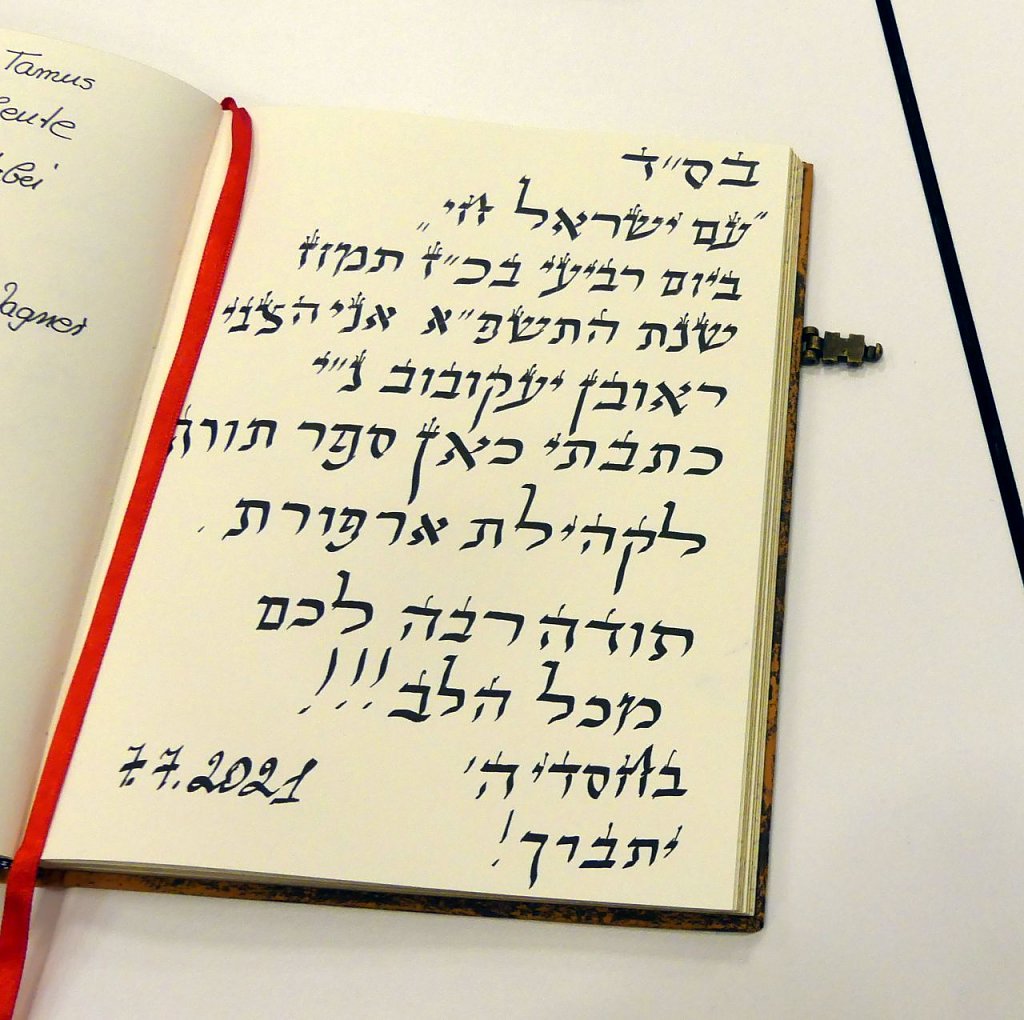 Tamus
eute
bei
בס״ד
״עם ישראל חי״
ביום רביעי בכ״ז תמוז
שנת התשפ״א אני הצבי
ראובן יעקובוב נ״י
כתבתי כאן ספר תורה
לקהילת ארפורת.
תודה רבה לכם
מכל הלב!!!
בחסדי ה׳
7.7.2021
יתברך!